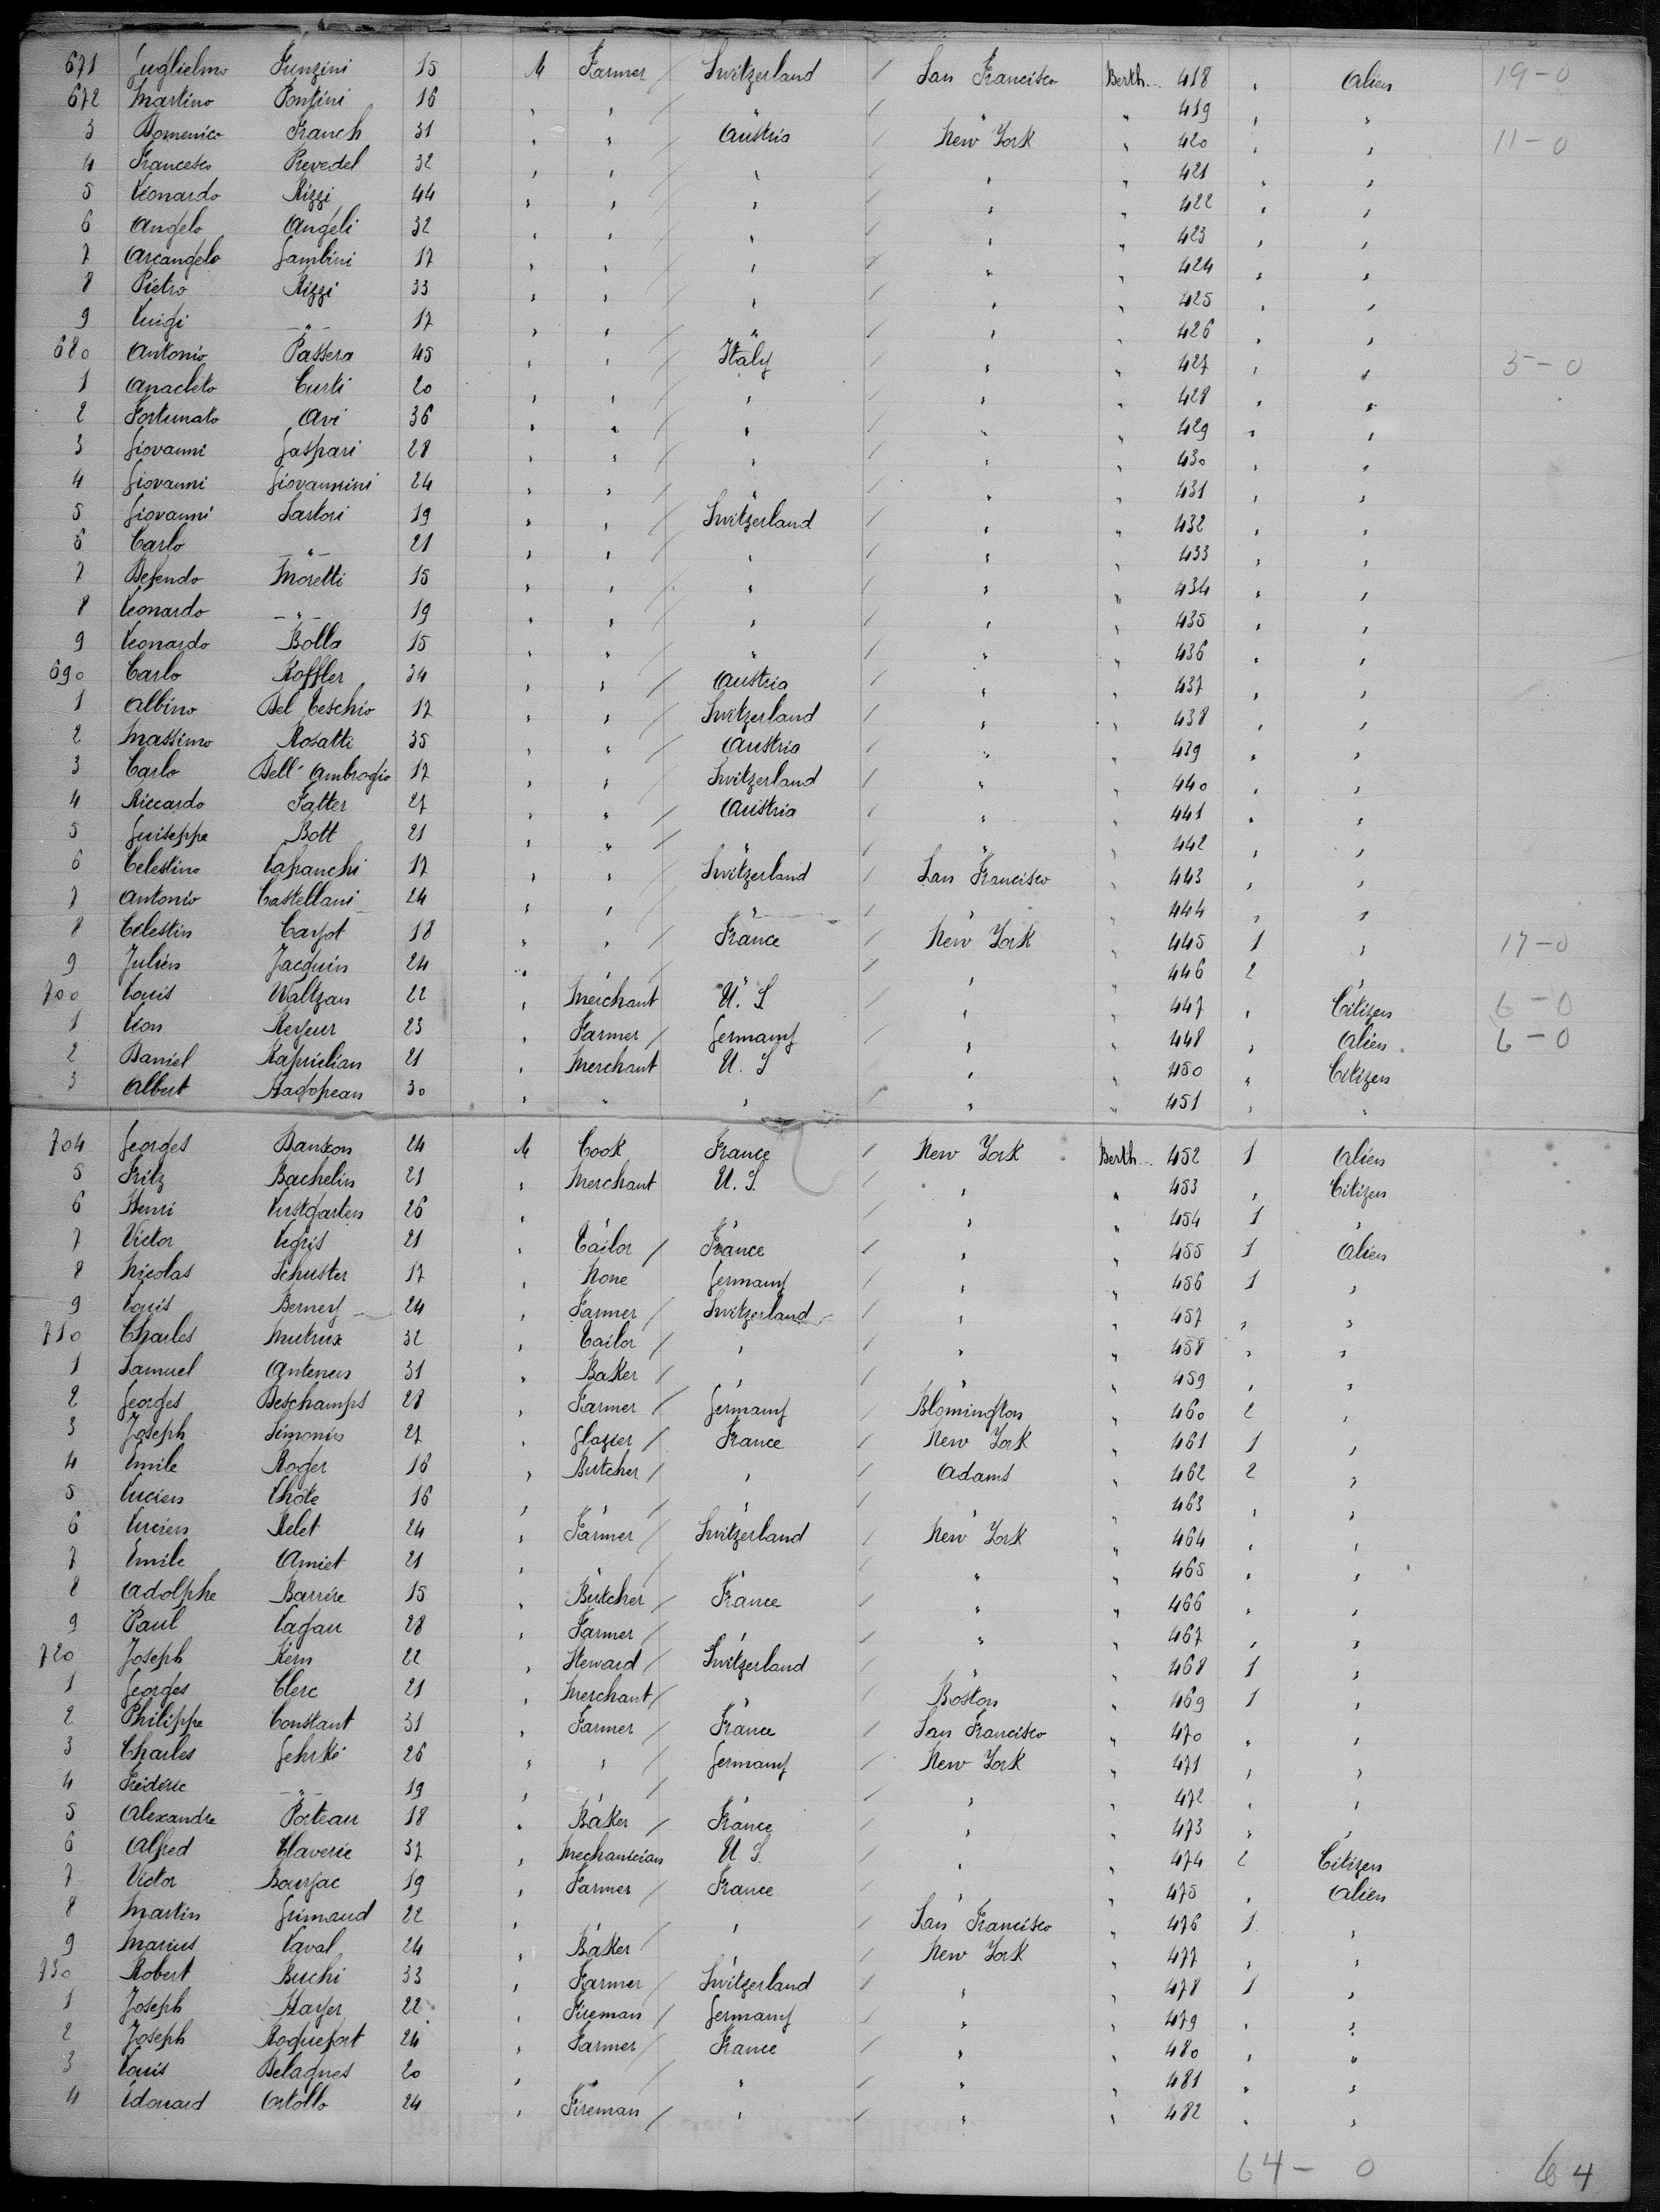 671 Guglielmo Funzini 15 M Farmer / Switzerland / San Francisco Berth. 418 " Alien 19-0
672 Martino Ponzini 16 " " / " / " " 419 " "
3 Domenico Franch 31 " " / Austria / New York " 420 " " 11-0
4 Francesco Prevedel 32 " " / " / " " 421 " "
5 Leonardo Rizzi 44 " " / " / " " 422 " "
6 Angelo Angeli 32 " " / " / " " 423 " "
7 Arcangelo Gambini 17 " " / " / " " 424 " "
8 Pietro Rizzi 33 " " / " / " " 425 " "
9 Luigi -"- 17 " " / " / " " 426 " "
680 Antonio Passera 45 " " / Italy / " " 427 " " 5-0
1 Anacleto Curti 20 " " / " / " " 428 " "
2 Fortunato Avi 36 " " / " / " " 429 " "
3 Giovanni Gaspari 28 " " / " / " " 430 " "
4 Giovanni Giovannini 24 " " / " / " " 431 " "
5 Giovanni Sartori 19 " " / Switzerland / " " 432 " "
6 Carlo -"- 21 " " / " / " " 433 " "
7 Defendo Moretti 15 " " / " / " " 434 " "
8 Leonardo -"- 19 " " / " / " " 435 " "
9 Leonardo Bolla 15 " " / " / " " 436 " "
690 Carlo Koffler 34 " " / Austria / " " 437 " "
1 Albino Del Teschio 17 " " / Switzerland / " " 438 " "
2 Massimo Rosatti 35 " " / Austria / " " 439 " "
3 Carlo Dell' Ambrogio 17 " " / Switzerland / " " 440 " "
4 Riccardo Fatter 27 " " / Austria / " " 441 " "
5 Guiseppe Bott 21 " " / " / " " 442 " "
6 Celestino Lafranchi 17 " " / Switzerland / San Francisco " 443 " "
7 Antonio Castellani 24 " " / " / " " 444 " "
8 Celestin Carjot 18 " " / France / New York " 445 1 " 17-0
9 Julien Jacquin 24 " " / " / " " 446 2 "
700 Louis Waltzan 22 " Merchant U. S / " " 447 " Citizen 6-0
1 Leon Reyeur 23 " Farmer / Germany / " " 448 " Alien 6-0
2 Daniel Kaprielian 21 " Merchant U. S / " " 450 " Citizen
3 Albert Hagopean 30 " " " / " " 451 " "
704 Georges Banson 24 M Cook France / New York Berth. 452 1 Alien
5 Fritz Bachelin 21 " Merchant U. S. / " " 453 " Citizen
6 Henri Lustgarten 26 " " " / " " 454 1 "
7 Victor Legris 21 " Tailor / France / " " 455 1 Alien
8 Nicolas Schuster 17 " None Germany / " " 456 1 "
9 Louis Berney 24 " Farmer / Switzerland / " " 457 " "
710 Charles Mutrux 32 " Tailor / " / " " 458 " "
1 Samuel Antenen 31 " Baker / " / " " 459 " "
2 Georges Deschamps 28 " Farmer / Germany / Blomington " 460 2 "
3 Joseph Simonin 27 " Glazier / France / New York " 461 1 "
4 Emile Roger 18 " Butcher / " / Adams " 462 2 "
5 Lucien Lhote 16 " " / " / " " 463 " "
6 Lucien Relet 24 " Farmer / Switzerland / New York " 464 " "
7 Emile Amiet 21 " " / " / " " 465 " "
8 Adolphe Barrère 15 " Butcher / France / " " 466 " "
9 Paul Lagau 28 " Farmer / " / " " 467 " "
720 Joseph Kern 22 " Steward / Switzerland / " " 468 1 "
1 Georges Clerc 21 " Merchant / " / Boston " 469 1 "
2 Philippe Constant 31 " Farmer / France / San Francisco " 470 " "
3 Charles Gehrké 26 " " / Germany / New York " 471 " "
4 Fréderic -"- 19 " " / " / " " 472 " "
5 Alexandre Porteau 18 " Baker / France / " " 473 " "
6 Alfred Claverie 37 " Mechanician U. S. / " " 474 2 Citizen
7 Victor Bourjac 19 " Farmer / France / " " 475 " Alien
8 Martin Grimaud 22 " " / " / San Francisco " 476 1 "
9 Marius Laval 24 " Baker / " / New York " 477 " "
730 Robert Buchi 33 " Farmer / Switzerland / " " 478 1 "
1 Joseph Hayer 22 " Fireman / Germany / " " 479 " "
2 Joseph Roquefort 24 " Farmer / France / " " 480 " "
3 Louis Delagnes 20 " " / " / " " 481 " "
4 Edouard Ortollo 24 " Fireman / " / " " 482 " "
64 - 0 64